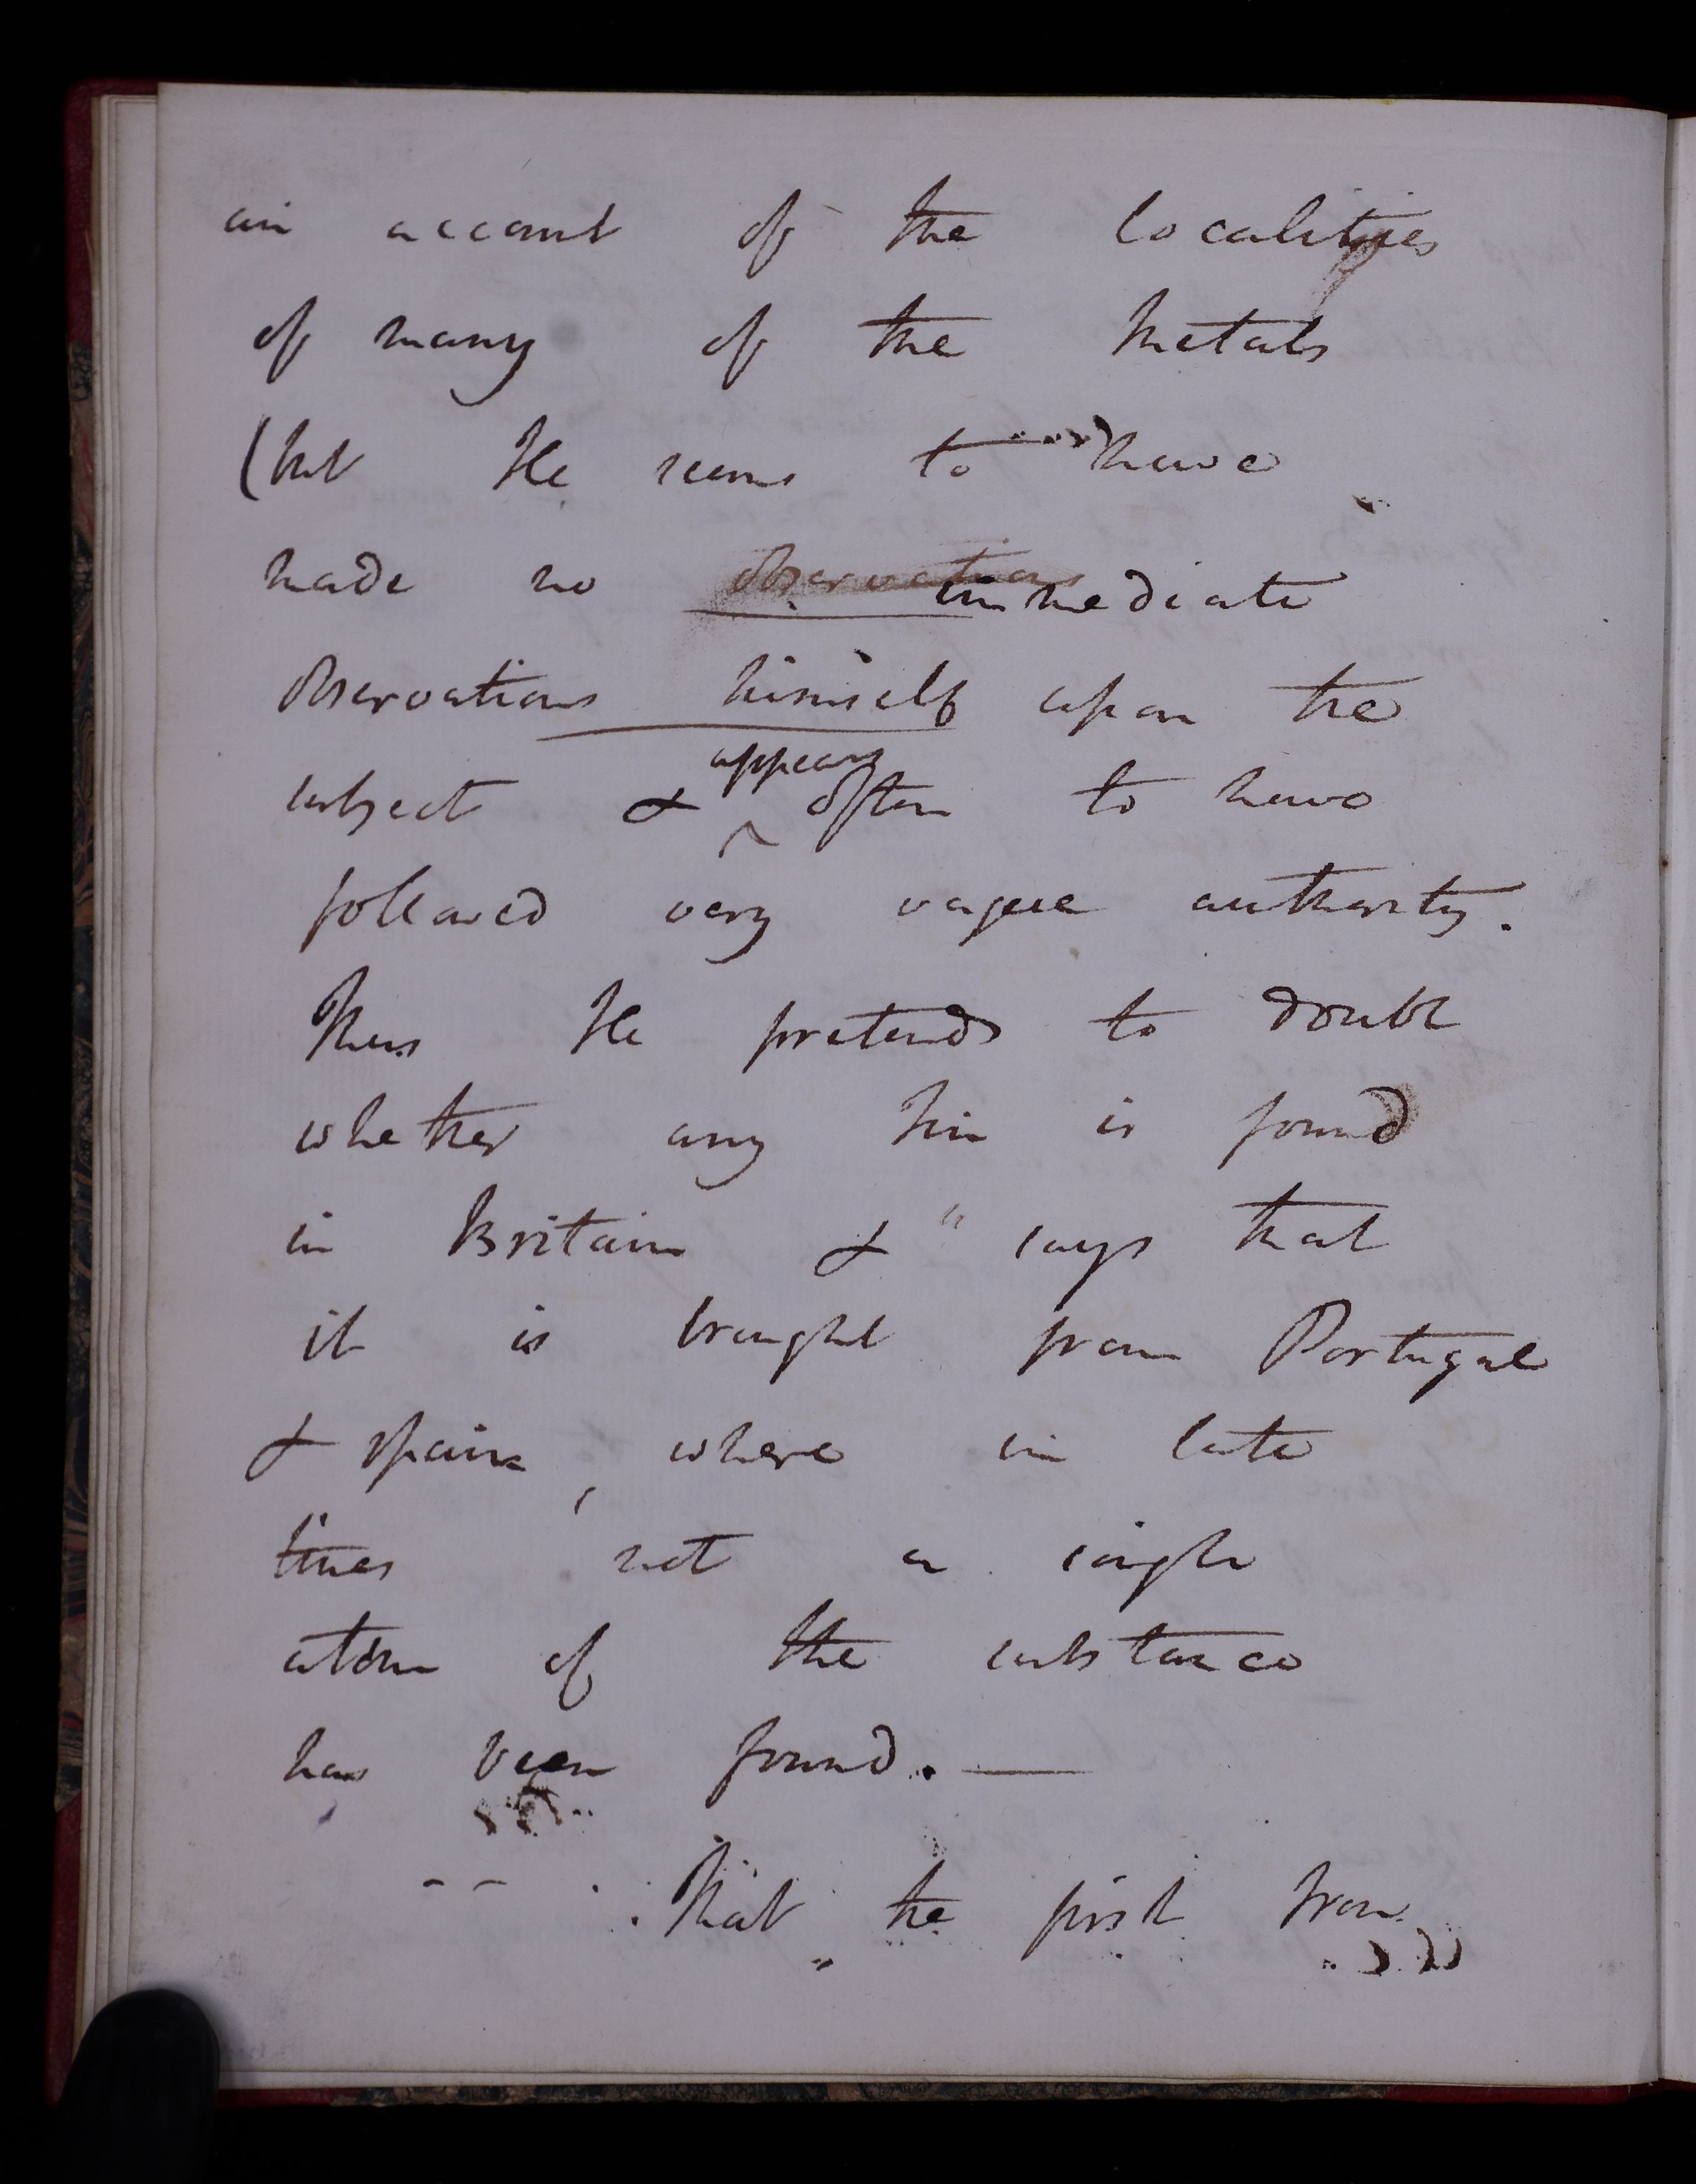 an account of the localities
of many of the Metals
(but He seems to have
made no observations immediate
observations himself upon the
appears
subject & often to have
followed very vague authority.
Thus He pretends to doubt
whether any tin is found
in Britain & " says that
it is brought from Portugal
& Spain, where in late
times not a single
atom of the substance
has been found. —
- - . That the first Iron